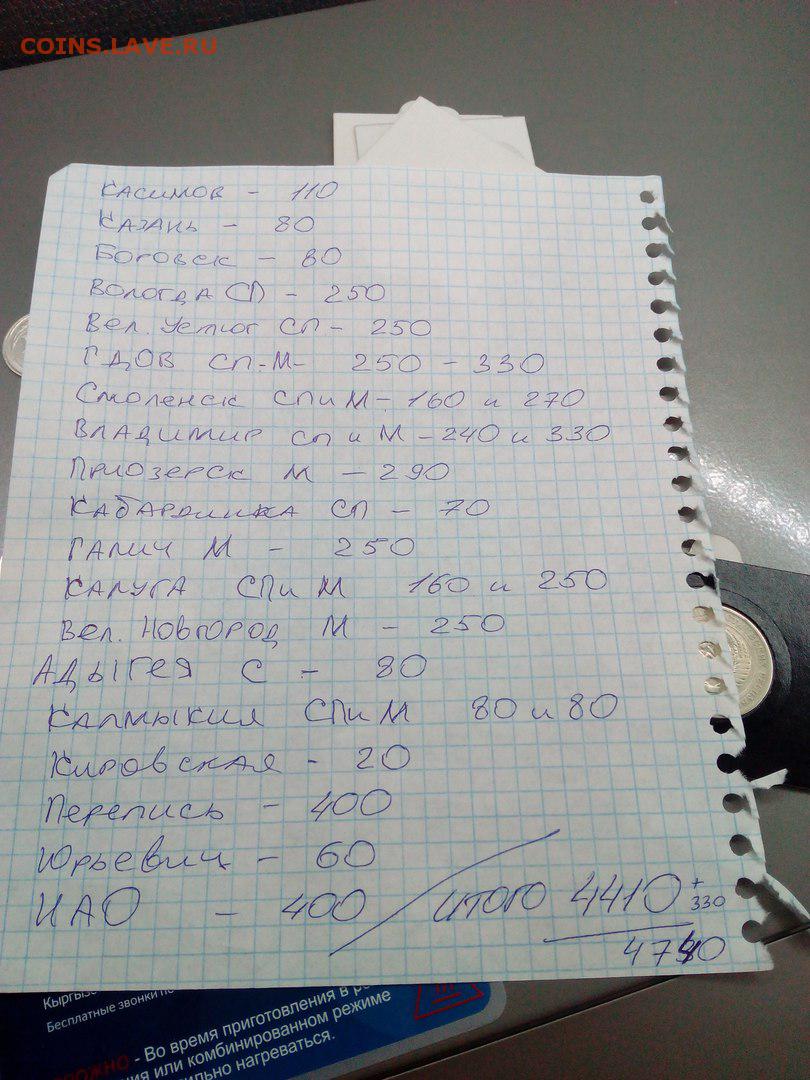 COINS.LAVE.RU
Касимов - 110
Казань - 80
Боровск - 80
Вологда СП - 250
Вел. Устюг СП - 250
ГДОВ СП-М- 250 - 330
Смоленск СПиМ - 160 и 270
Владимир сп и М - 240 и 330
Приозерск М - 290
Кабардинка СП - 70
Галич М - 250
Калуга СПиМ 160 и 250
Вел. Новгород М - 250
Адыгея С - 80
Калмыкия СПиМ 80 и 80
Кировская - 20
Перепись - 400
Юрьевец - 60
НАО - 400 / итого 4410 + 330
Кыргыз
Бесплатные звонки по
- Во время приготовления в
или комбинированном режиме
нагреваться.